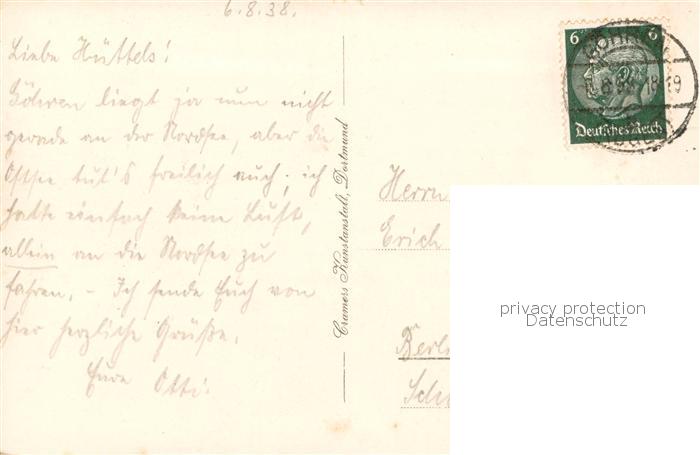 6.8.38.
Liebe Hüttels!
Göhren liegt ja nun nicht
gerade an der Nordsee, aber die
Ostsee tut's freilich auch; ich
hatte einfach keine Lust,
allein an die Nordsee zu
fahren. – Ich sende Euch von
hier herzliche Grüße.
Eure Otti.
Cramers Kunstanstalt, Dortmund
6 6
18-19
Deutsches Reich
Herrn
Erich
privacy protection
Datenschutz